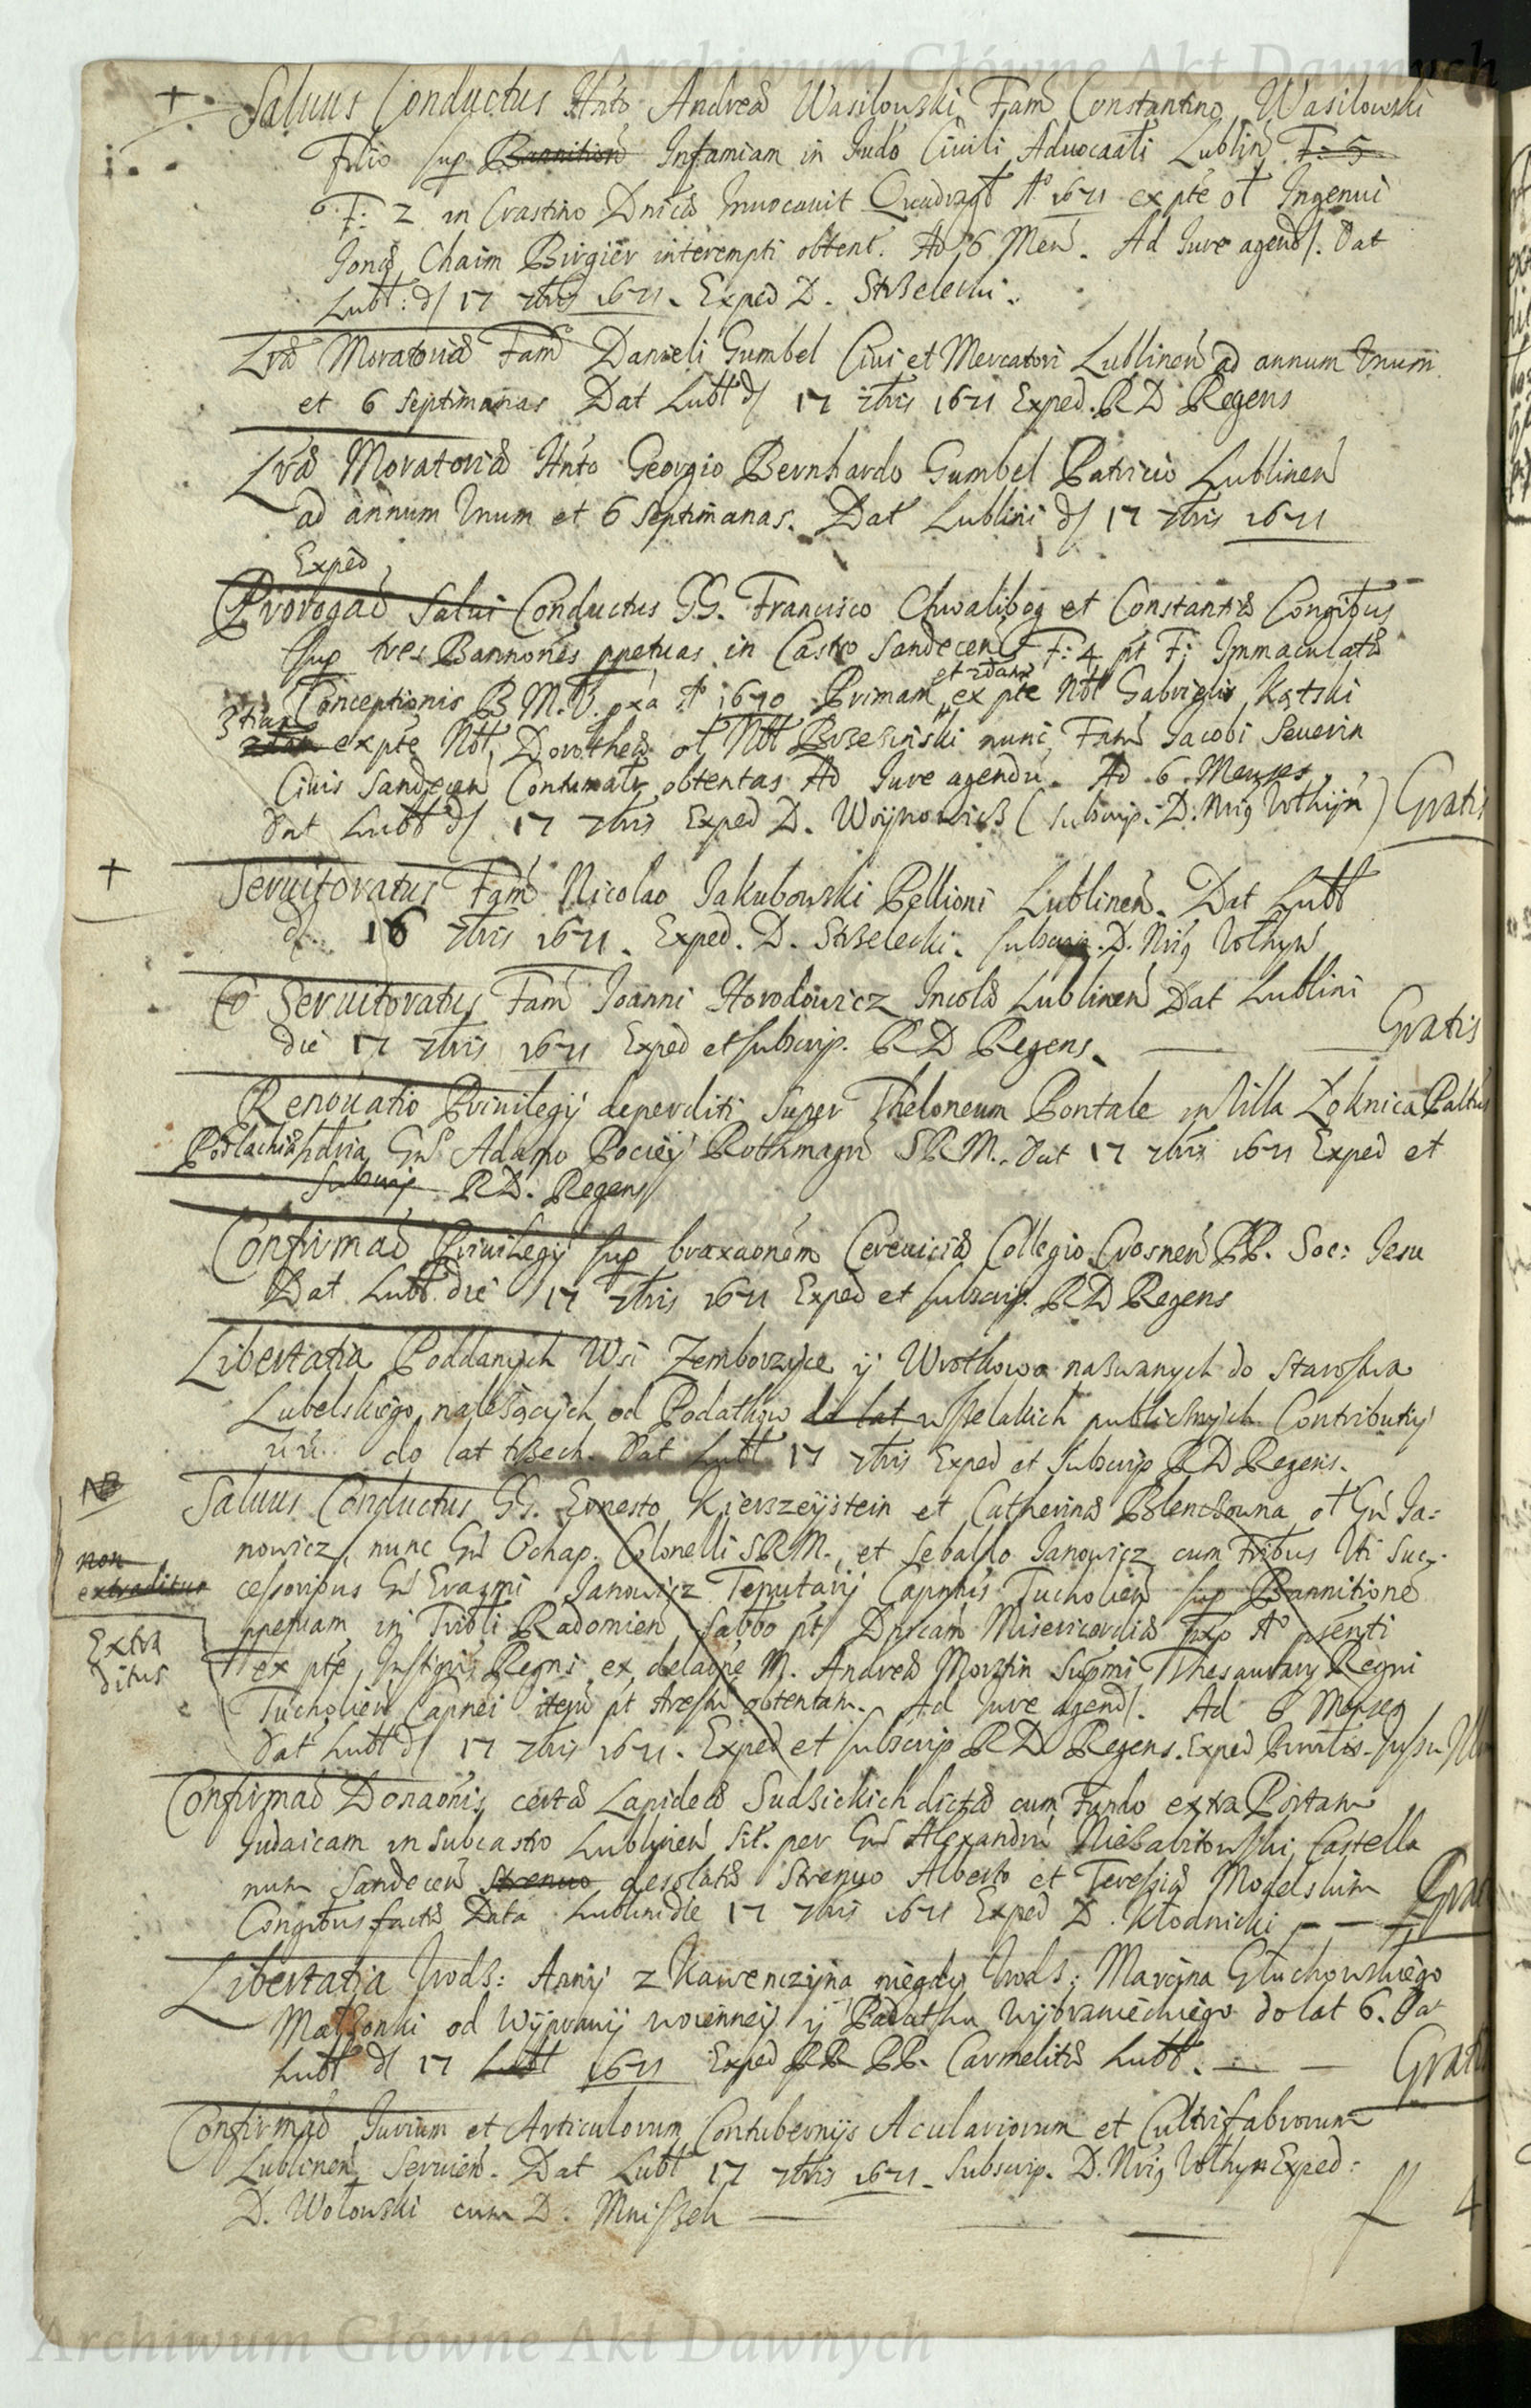 Archiwum Główne Akt Dawnych
+ Salvus Conductus Hnto Andreæ Wasilowski Fam Constantino Wasilowski
Filio sup Bannition Infamiam in Iudo Civili Advocaati Lublin F: 5
F: 2 in Crastino Dnicæ Invocavit Quadragt A° 1671 ex pte ol Ingenui
Ionæ Chaim Birgier interempti obtent. Ad 6 Men. Ad Iure agend. Dat
Lubl: d 17 7bris 1671. Exped D. Strzelecki.
Lræ Moratoriæ Fam Danieli Gumbel Civi et Mercatori Lublinen ad annum Unum
et 6 septimanas Dat Lubl d 17 7bris 1671 Exped. RD Regens
Lræ Moratoriæ Hnto Georgio Bernhardo Gumbel Patricio Lublinen
ad annum Unum et 6 septimanas. Dat Lublini d 17 7bris 1671
Exped
Prorogao Salvi Conductus GG. Francisco Chwalibog et Constantiæ Congibus
sup tres Bannones ppetuas in Castro Sandecen F: 4 pt F: Immaculatæ
Conceptionis B.M.V. pxa A° 1670 Primam et 2dam ex pte Nbl Gabrielis Kątski
3tiam 2dam ex pte Nbl Dorotheæ ol Nbl Brzesinski nunc Fam Iacobi Severin
Civis Sandecen Contumatr obtentas Ad Iure agendu. Ad 6 Menses
Dat Lubl d 17 7bris Exped D. Woynowicz (subscrip. D. Nrig Vothyn) Gratis
+ Servitoratus Fam Nicolao Iakubowski Pellioni Lublinen. Dat Lubl
d. 16 7bris 1671. Exped. D. Strzelecki. subscrip. D. Nrig Vothyn
Co Servitoratus Fam Ioanni Horodowicz Incolæ Lublinen Dat Lublini
die 17 7bris 1671 Exped et subscrip. RD Regens. Gratis
Renovatio Privilegij deperditi super Theloneum Pontale in Villa Łoknica Paltus
Podlachiæ Gd Adamo Pociey Rothmagro SRM. Dat 17 7bris 1671 Exped et
subscrip RD. Regens
Confirmao Privilegij sup braxaonem Cerevisiæ Collegio Crosnen PP. Soc: Iesu
Dat Lubl die 17 7bris 1671 Exped et subscrip. RD Regens
Libertatia Poddanych Wsi Zemborzyce ij Wrotkowa nazwanych do Starostwa
Lubelskiego należących od Podatkow do lat wszelakich publicznych Contributij
do lat trzech. Dat Lubl 17 7bris Exped et subscrip RD Regens.
NB
Salvus Conductus GG. Ernesto Kierszeystein et Catherinæ Polenczowna ol Gd Ia=
nowicz, nunc Gd Ochap. Colonelli SRM., et Sebaldo Ianowicz cum Fribus Uti Suc-
non
extraditur
cessoribus Gd Erazmi Ianowicz Tenutarij Capntus Tucholien sup Bannitione
Extra
ditus
ppetuam in Tribli Radomien Sabbo pt Dnicam Misericordiæ pxo A° psenti
ex pte Instigris Regni ex delaone M. Andreæ Morztin Supmi Thesaurarij Regni
Tucholien Capnei itqu pt Arestu obtentam. Ad Iure agend. Ad 6 Menses
Dat Lubl d 17 7bris 1671. Exped et subscrip RD Regens. Exped
Confirmao Donaonis certæ Lapideæ Sudzickich dictæ cum Fundo extra Portam
Iudaicam in Subcastro Lublinen Sit. per Gd Alexandru Niezabitowski Castella
num Sandecen Strenuo desolatæ Strenuo Alberto et Teressiæ Modelskim
Congibus factæ Data Lublini die 17 7bris 1671 Exped D. Kłodnicki
Libertatia Urodz: Anny z Kawenczyna niegdy Urodz: Marcyna Głuchowskiego
Małżonki od Wyprawy woienney y Podatku Wybranieckiego do lat 6. Dat
Lubl d 17 Lubl 1671 Exped RR PP. Carmelitæ Lubl.
Confirmao Iurium et Articulorum Contubernijs Aculariorum et Cultrifabrorum
Lublinen Servien. Dat Lubl 17 7bris 1671. Subscrip. D. Nrig Vothyn Exped:
D. Wołowski cum D. Mniszek
Archiwum Główne Akt Dawnych